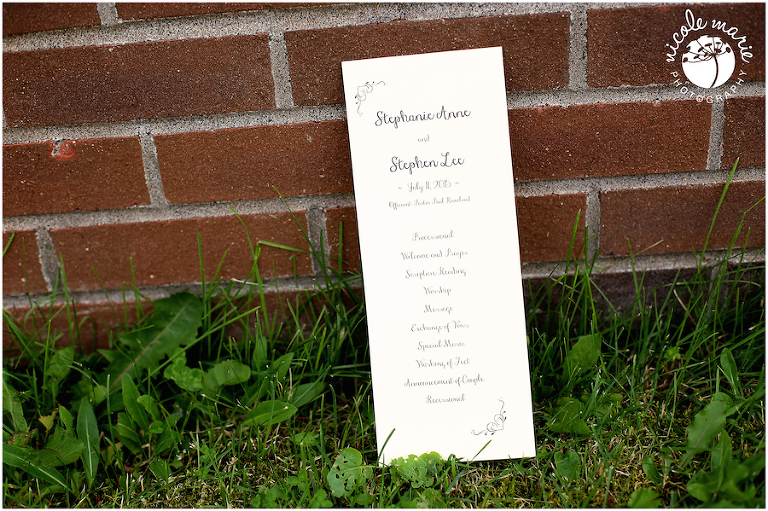 nicole marie
PHOTOGRAPHY
Stephanie Anne
and
Stephen Lee
~ July 11, 2015 ~
Officiant: Pastor
Processional
Welcome and Prayer
Scripture Reading
Worship
Message
Exchange of Vows
Special Music
Washing of Feet
Announcement of Couple
Recessional